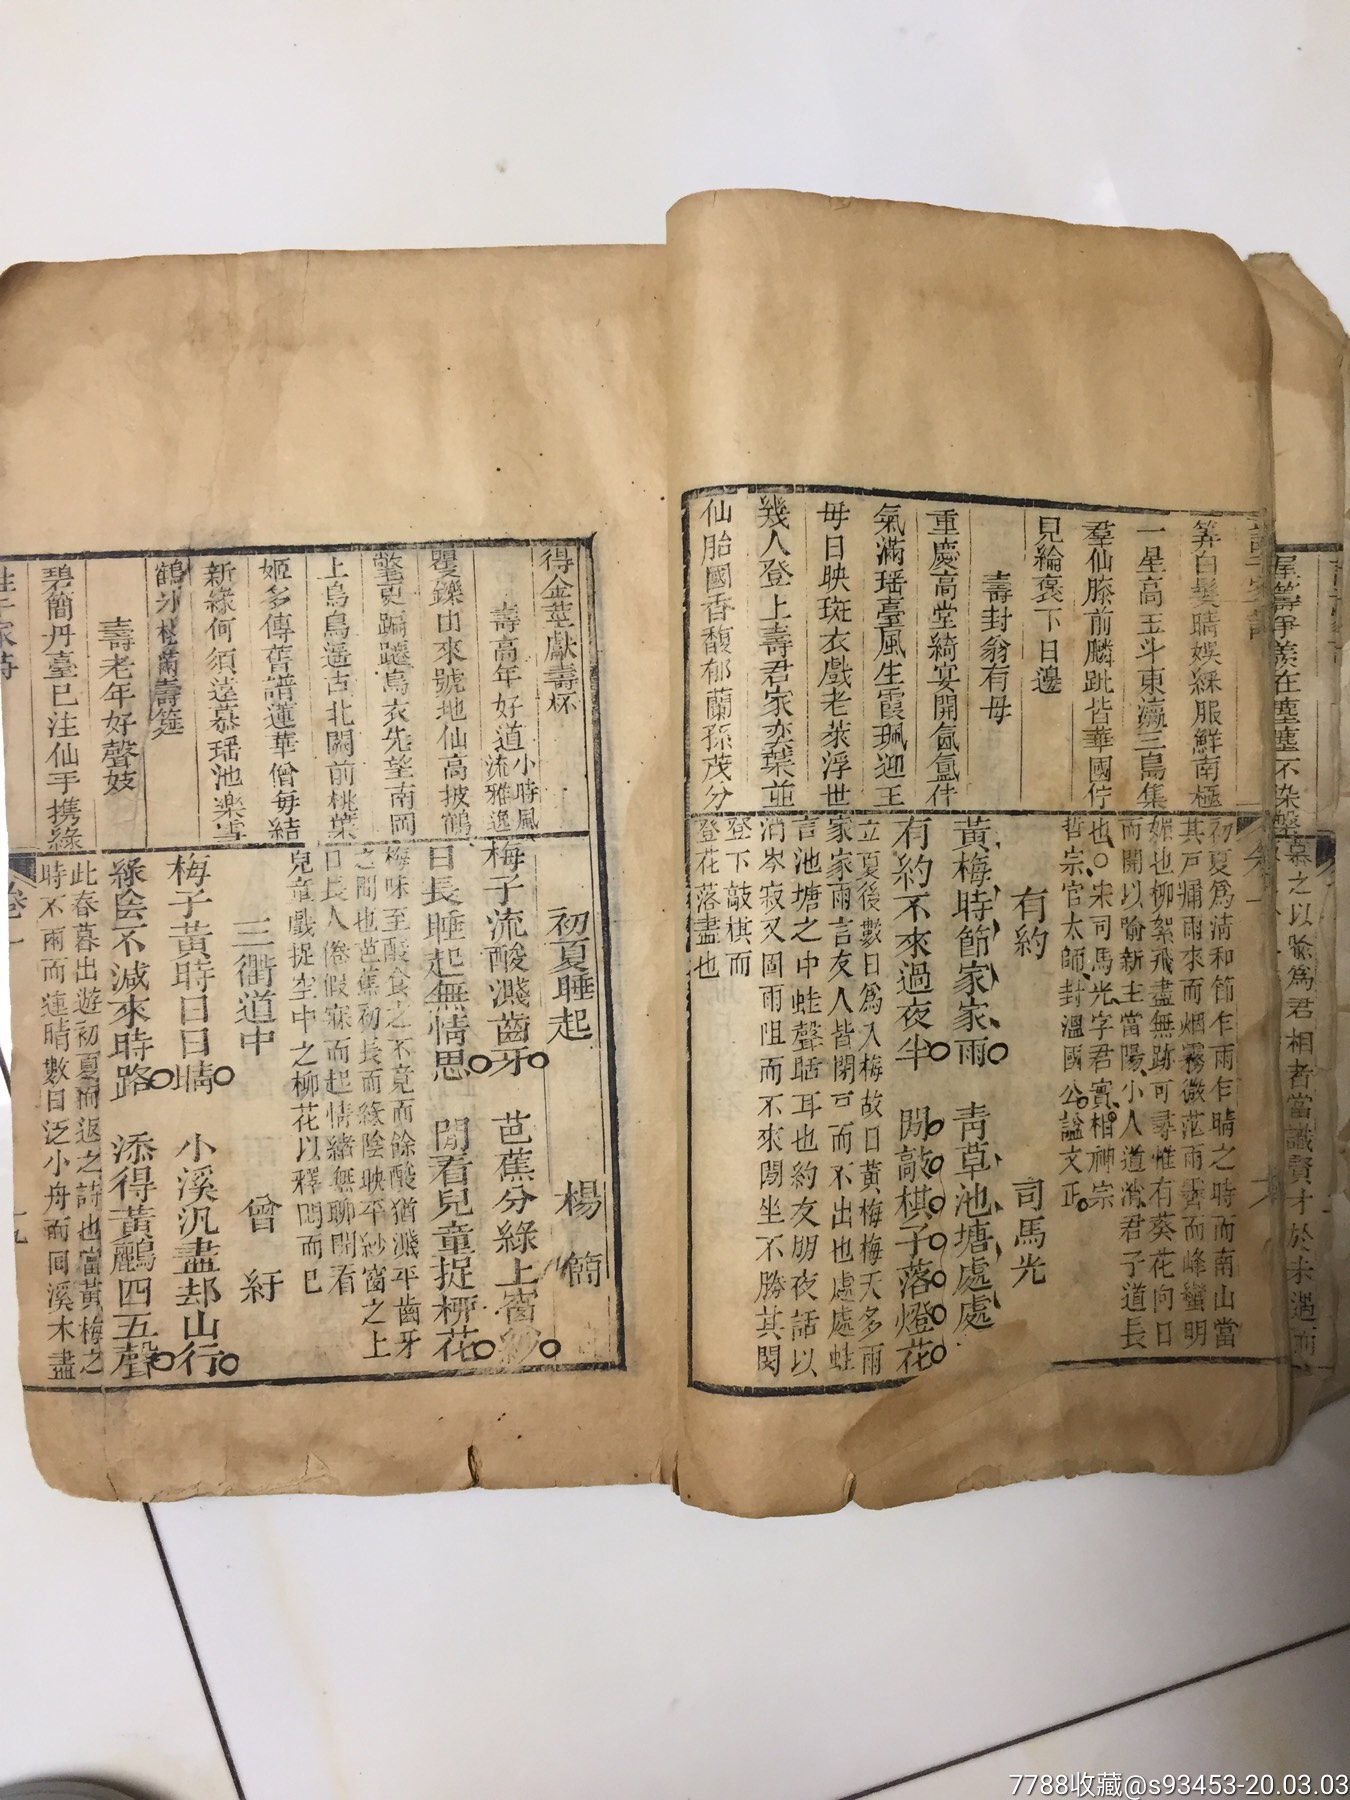 慕之以喻爲君相者當識賢才於未遇
筭白髮晴娛綵服鮮南極
一星高玉斗東瀛三島集
羣仙膝前麟趾皆華國佇
見綸褒下日邊
壽封翁有母
重慶高堂綺宴開氤氳佳
氣滿瑶臺風生霞珮迎王
母日映斑衣戲老萊浮世
幾人登上壽君家奕葉並
仙胎國香馥郁蘭孫茂分
初夏爲清和節乍雨乍晴之時而南山當
其戸漏雨來而烟霧微茫雨霽而峰巒明
媚也柳絮飛盡無跡可尋惟有葵花向日
而開以喻新主當陽小人道消君子道長
也○宋司馬光字君實相神宗
哲宗官太師封溫國公諡文正
有約 司馬光
黃梅時節家家雨 靑草池塘處處
有約不來過夜半 閒敲棋子落燈花
立夏後數日爲入梅故曰黃梅梅天多雨
家家雨言友人皆閉戸而不出也處處蛙
言池塘之中蛙聲聒耳也約友朋夜話以
消岑寂又因雨阻而不來閒坐不勝其悶
登下敲棋而
登花落盡也
得金莖獻壽杯
壽高年好道小時風流雅逸
矍鑠由來號地仙高披鶴
氅更躧舄衣先望南岡
上鳥鳥遥去北闕前桃葉
姬多傳舊譜蓮華僧每結
新緣何須遠慕瑶池樂雪
鶴氷桃荐壽筵
壽老年好聲妓
碧簡丹臺已注仙手携綠
初夏睡起 楊簡
梅子流酸濺齒牙 芭蕉分綠上窗紗
日長睡起無情思 閒看兒童捉栁花
梅味至酸食之不竟而餘酸猶濺乎齒牙
之間也芭蕉初長而綠陰映乎紗窗之上
日長人倦假寐而起情緒無聊閒看
兒童戲捉空中之柳花以釋悶而已
三衢道中 曾紆
梅子黃時日日晴 小溪汎盡却山行
綠陰不減來時路 添得黃鸝四五聲
此春暮出遊初夏而返之詩也當黃梅之
時不雨而連晴數日泛小舟而同溪木盡
卷一
7788收藏@s93453-20.03.03